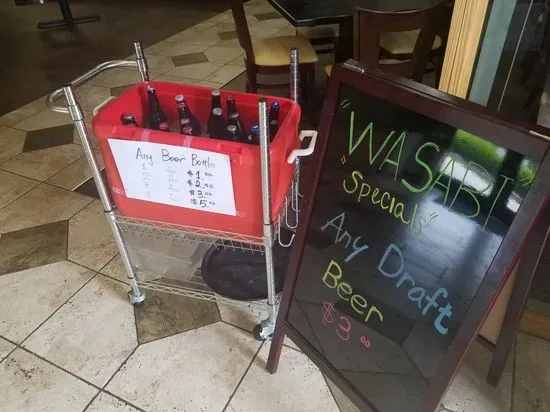 Any Beer Bottle
1 for $1.00
2 for $2.00
3 for $3.00
5 for $5.00
"WASABI"
"Specials"
Any Draft
Beer
$3.00